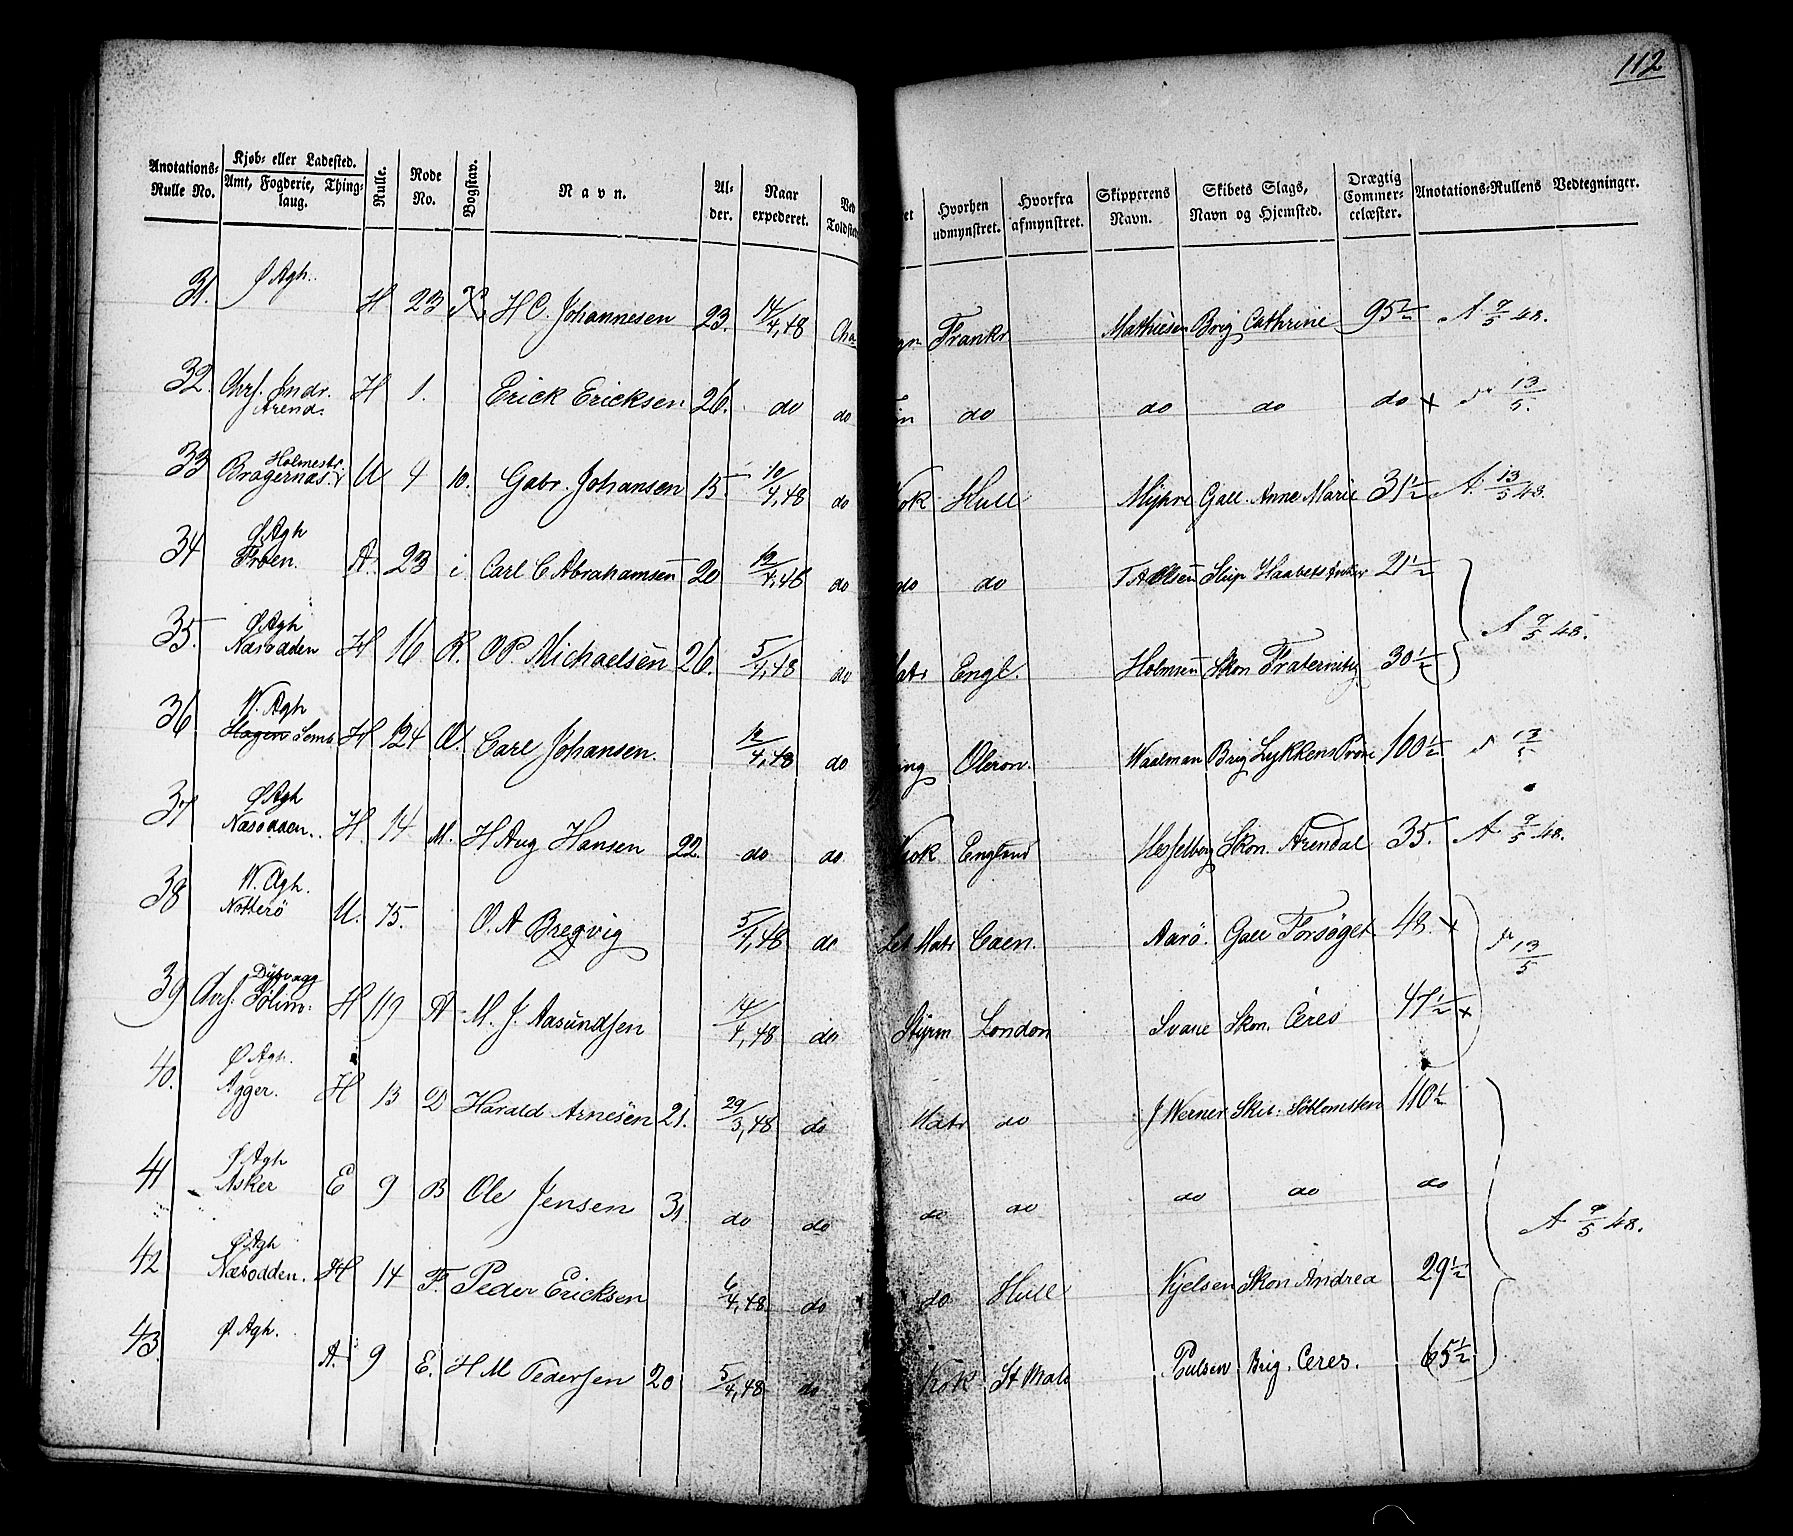 112
Anotations-Rulle No. | Kjøb- eller Ladested. Amt, Fogderie, Thinglaug. | Rulle. | Rode No. | Bogstav. | Navn. | Alder. | Naar expederet. | Ved Toldste | et | Hvorhen udmynstret. | Hvorfra afmynstret. | Skipperens Navn. | Skibets Slags, Navn og Hjemsted. | Drægtig Commercelæster. | Anotations-Rullens Vedtegninger.
31. Ø Agh. H 23 H C. Johannesen 23. 14/4, 48 Cha gn Frankr Mathiesen Brig Cathrine 95 1/2 A 9/5 48.
32. Chrs. Jndr. Arend. H 1. Erick Ericksen 26. do do do do do do x 13/5.
33 Holmestr. Bragernæs. U 4 10. Gabr. Johansen 15. 10/4, 48 do Kok Hull Myhre Gall. Anne Marie 31 1/2 A. 13/5 48.
34 Ø Agh Froen. A. 23 i. Carl C Abrahamsen 20 12/4, 48 do do do T A Olsen Slup Haabets Anker 21 1/2
35. Ø Agh Næsodden H 16 K. O P. Michaelsen 26. 5/4, 48 do Matr Engl. Holmsen Skon Fraternity 30 1/2 A 9/5 48.
36 W. Agh Hagen Sem H 124 O. Carl Johansen. 12/4, 48 do ing Oleron. Waalman Brig Lykkens Prøve 100 1/2 13/5
37 Ø Agh Næsodden. H. 14 M. H Aug Hansen 22. do do Kok. England Hesselberg Skon. Arendal 35. A 9/5 48.
38 W. Agh. Nøtterö U. 75. O. A Bregvig 5/4, 48 do Let Matr Caen. Aarö. Gall Forsöget 48. x 13/5
39 Chrs. Dybvaag H 119 A M. J. Aasundsen 14/4, 48 do Styrm London Svane Skon. Ceres 47 1/2 x
40. Ø Agh. Agger. H 13 D Harald Arnesen 21. 29/3, 48 do Matr do J Werner Skib: Söblomsten 110 1/2
41 Ø Agh Asker E 9 B Ole Jensen 31. do do do do do do do A 9/5 48.
42 Ø Agh Næsodden. H 14 F. Peder Ericksen 6/4, 48. do do Hull Njelsen Skon Andrea 29 1/2
43. Ø. Agh. A. 9 E. H M Pedersen 20 5/4, 48 do Kok St Malo Poulsen Brig. Ceres. 65 1/2